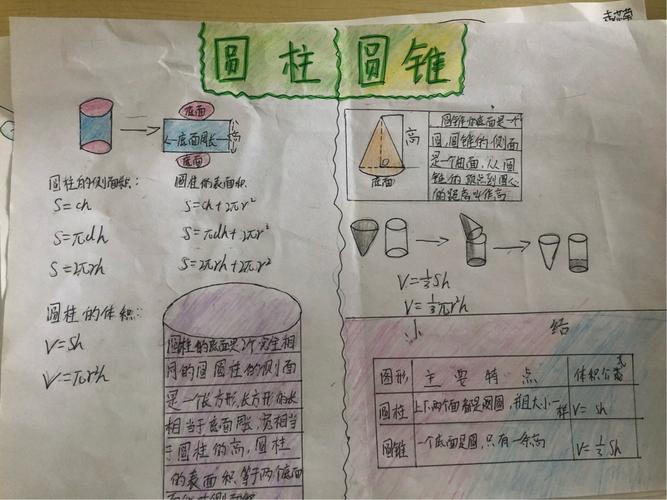 圆柱 圆锥
底面
底面周长
高
底面
圆柱的侧面积:
S=ch
S=πdh
S=2πrh
圆柱的表面积
S=ch+2πr²
S=πdh+2πr²
S=2πrh+2πr²
圆柱的体积:
V=Sh
V=πr²h
圆柱的底面是2个完全相
同的圆圆柱的侧面
是一个长方形,长方形的长
相当于底面周长,宽相当
于圆柱的高,圆柱
的表面积等于两个底面
高
底面
圆锥的底面是一个
圆,圆锥的侧面
是一个曲面,从圆
锥的顶点到圆心
的距离叫作高
V=⅓Sh
V=⅓πr²h
小 结
图形 主要特点 体积公式
圆柱 上下两个面都是圆,并且大小一样 V=sh
圆锥 一个底面是圆,只有一条高 V=⅓Sh